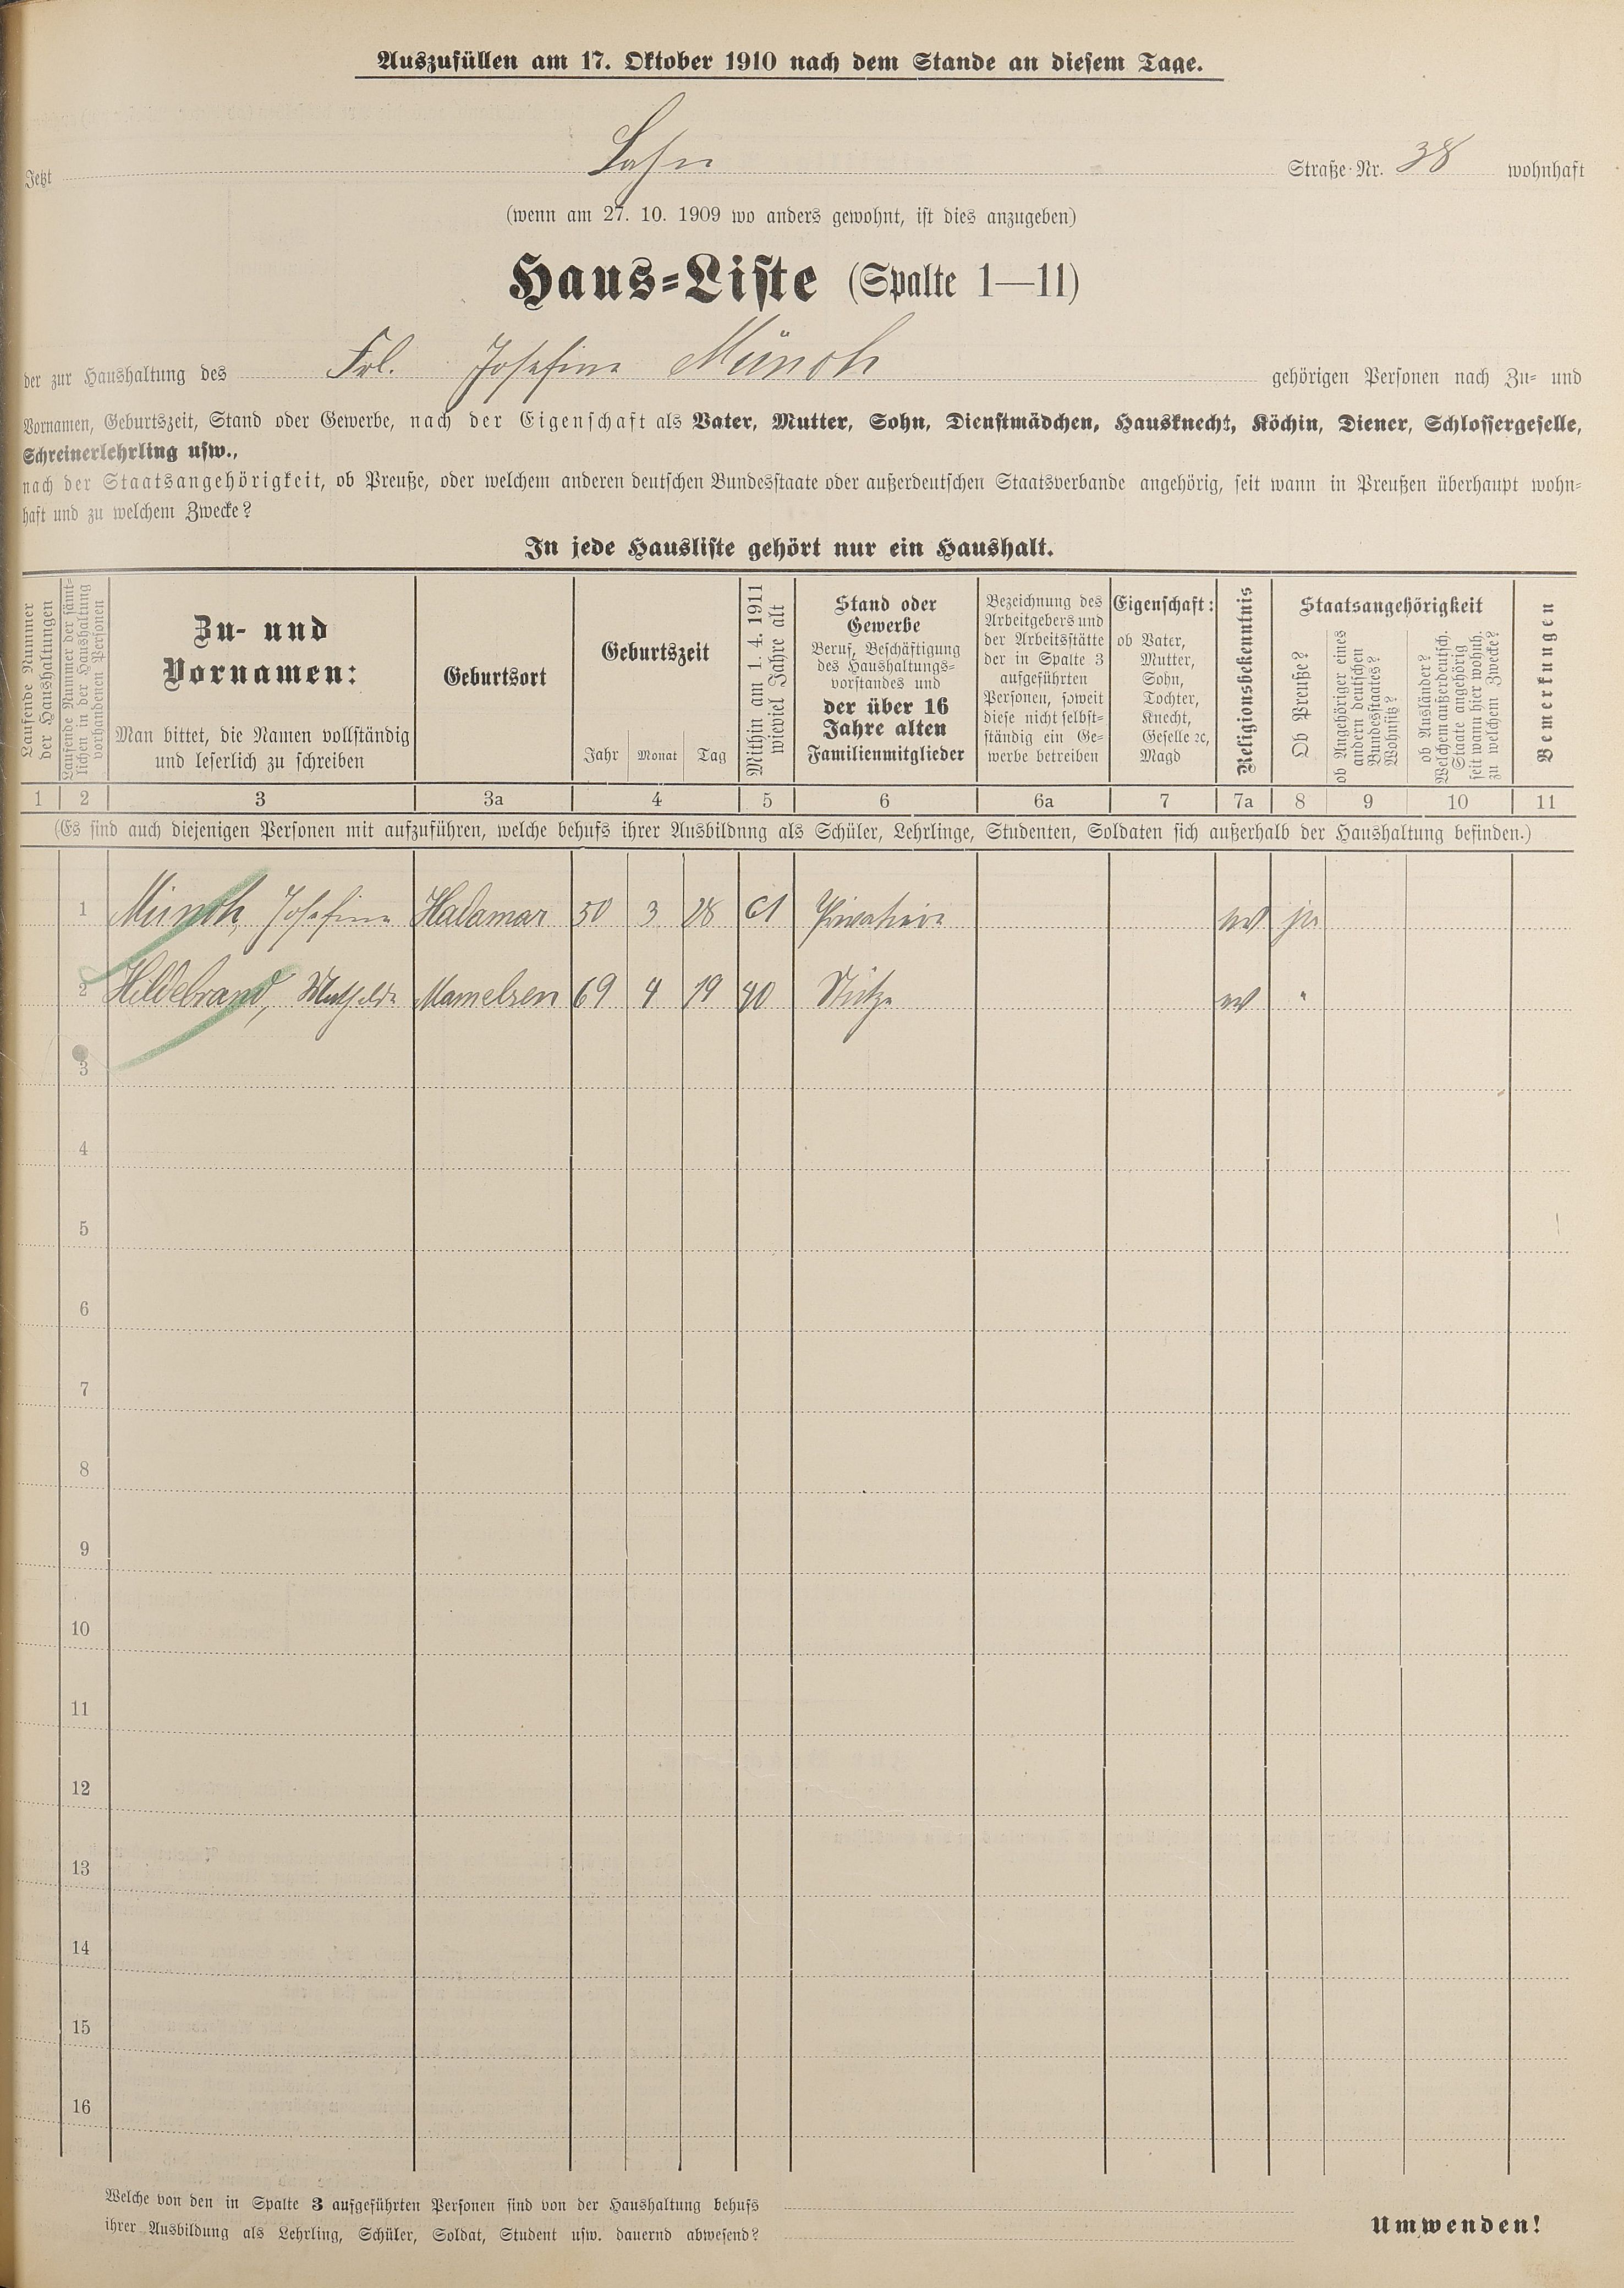 Auszufüllen am 17. Oktober 1910 nach dem Stande an diesem Tage.
Jetzt Lahn Straße-Nr. 38 wohnhaft
(wenn am 27. 10. 1909 wo anders gewohnt, ist dies anzugeben)
Haus-Liste (Spalte 1—11)
der zur Haushaltung des Frl. Josefine Münch gehörigen Personen nach Zu- und
Vornamen, Geburtszeit, Stand oder Gewerbe, nach der Eigenschaft als Vater, Mutter, Sohn, Dienstmädchen, Hausknecht, Köchin, Diener, Schlossergeselle,
Schreinerlehrling usw.,
nach der Staatsangehörigkeit, ob Preuße, oder welchem anderen deutschen Bundesstaate oder außerdeutschen Staatsverbande angehörig, seit wann in Preußen überhaupt wohn-
haft und zu welchem Zwecke?
In jede Hausliste gehört nur ein Haushalt.
Laufende Nummer
der Haushaltungen
Laufende Nummer der sämt-
lichen in der Haushaltung
vorhandenen Personen
Zu- und
Vornamen:
Man bittet, die Namen vollständig
und leserlich zu schreiben
Geburtsort
Geburtszeit
Jahr Monat Tag
Mithin am 1. 4. 1911
wieviel Jahre alt
Stand oder
Gewerbe
Beruf, Beschäftigung
des Haushaltungs-
vorstandes und
der über 16
Jahre alten
Familienmitglieder
Bezeichnung des
Arbeitgebers und
der Arbeitsstätte
der in Spalte 3
aufgeführten
Personen, soweit
diese nicht selbst-
ständig ein Ge-
werbe betreiben
Eigenschaft:
ob Vater,
Mutter,
Sohn,
Tochter,
Knecht,
Geselle ꝛc,
Magd
Religionsbekenntnis
Staatsangehörigkeit
Ob Preuße?
ob Angehöriger eines
andern deutschen
Bundesstaates?
Wohnsitz?
ob Ausländer?
Welchem außerdeutsch.
Staate angehörig
seit wann hier wohnh.
zu welchem Zwecke?
Bemerkungen
1 2 3 3a 4 5 6 6a 7 7a 8 9 10 11
(Es sind auch diejenigen Personen mit aufzuführen, welche behufs ihrer Ausbildung als Schüler, Lehrlinge, Studenten, Soldaten sich außerhalb der Haushaltung befinden.)
1 Münch, Josefine Hadamar 50 3 28 61 ja
2 Hildebrand, 69 4 19 40 Stütze "
3
4
5
6
7
8
9
10
11
12
13
14
15
16
Welche von den in Spalte 3 aufgeführten Personen sind von der Haushaltung behufs
ihrer Ausbildung als Lehrling, Schüler, Soldat, Student usw. dauernd abwesend?
Umwenden!